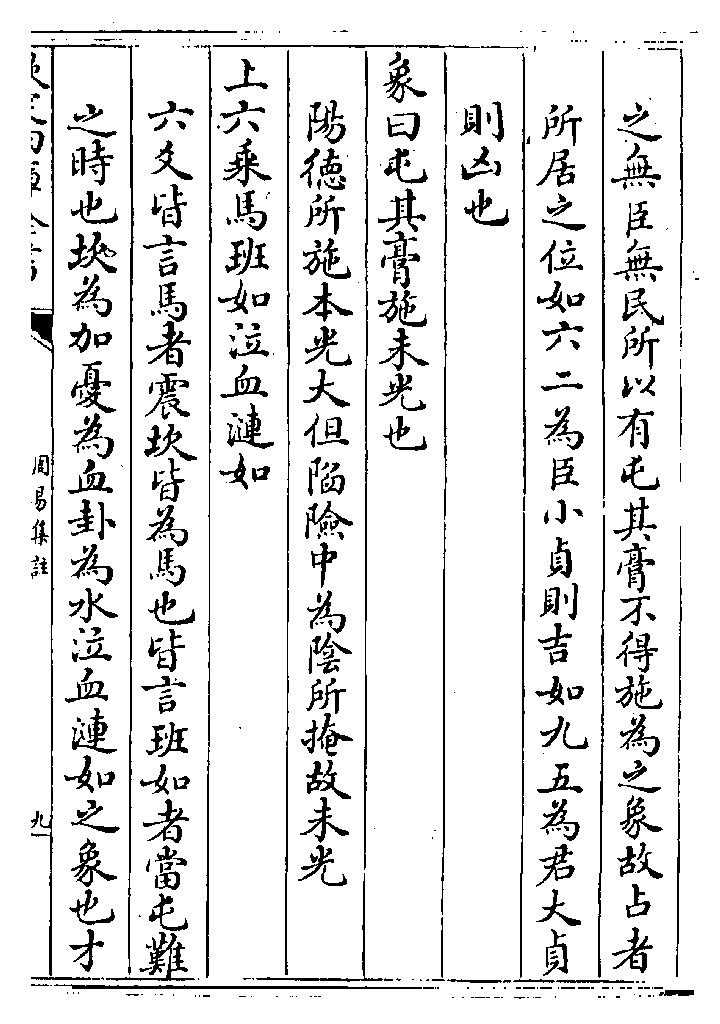 之無臣無民所以有屯其膏不得施為之象故占者
所居之位如六二為臣小貞則吉如九五為君大貞
則凶也
象曰屯其膏施未光也
陽德所施本光大但陷險中為陰所掩故未光
上六乘馬班如泣血漣如
六爻皆言馬者震坎皆為馬也皆言班如者當屯難
之時也坎為加憂為血卦為水泣血漣如之象也才
周易集註
九